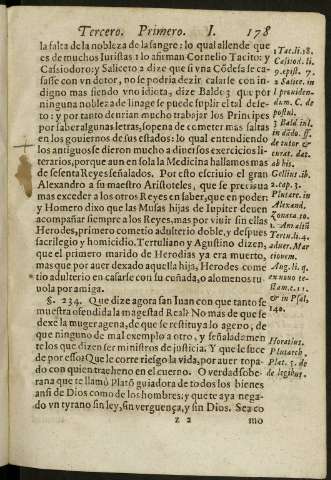 Tercero. Primero. I. 178
la falta de la nobleza de la sangre: lo qual allende que
es de muchos Iuristas 1 lo afirman Cornelio Tacito: y
Cassiodoro: y Saliceto 2 dize que si vna Cõdesa se ca-
sasse con vn dotor, no se podria dezir casarse con in-
digno mas siendo vno idiota, dize Baldo 3 que por
ninguna nobleza de linage se puede suplir el tal defe-
to: y por tanto deurian mucho trabajar los Principes
por saber algunas letras, sopena de cometer mas faltas
en los gouiernos de sus estados: lo qual entendiendo
los antiguos se dieron mucho a diuersos exercicios li-
terarios, porque aun en sola la Medicina hallamos mas
de sesenta Reyes señalados. Por esto escriuio el gran
Alexandro a su maestro Aristoteles, que se preciaua
mas exceder a los otros Reyes en saber, que en poder:
y Homero dixo que las Musas hijas de Iupiter deuen
acompañar siempre a los Reyes, mas por viuir sin ellas
Herodes, primero cometio adulterio doble, y despues
sacrilegio y homicidio. Tertuliano y Agustino dizen,
que el primero marido de Herodias ya era muerto,
mas que por auer dexado aquella hija, Herodes come
tio adulterio en casarse con su cuñada, o alomenos tu-
uola por amiga.
§. 234. Que dize agora san Iuan con que tanto se
muestra ofendida la magestad Real? No mas de que se
dexe la muger agena, de que se restituya lo ageno, de
que ninguno de mal exemplo a otro, y señaladamen
te los que dezen ser ministros de justicia. Y que le suce
de por esso? Que le corre riesgo la vida, por auer topa-
do con quien trae heno en el cuerno. O verdad sobe-
rana que te llamó Platõ guiadora de todos los bienes
ansi de Dios como de los hombres: y que te aya nega-
do vn tyrano sin ley, sin verguença, y sin Dios. Sea co
z 2 mo
1 Tac. li. 18.
Cassiod. li.
9. epist. 7.
2 Salice. in
l prouiden-
dum. C. de
postul.
3 Bald inl.
in dãdo. ff.
de tutor &
curat. dat.
ab his.
Gellius .ib.
2. cap. 3.
Plutarc. in
Alexand.
Zonara 10.
Tertu. li. 4.
aduer. Mar
cionem.
Aug. li. q.
& in Psal.
140.
Horatius.
Plutarch.
Plat. 5. de
de legibus.